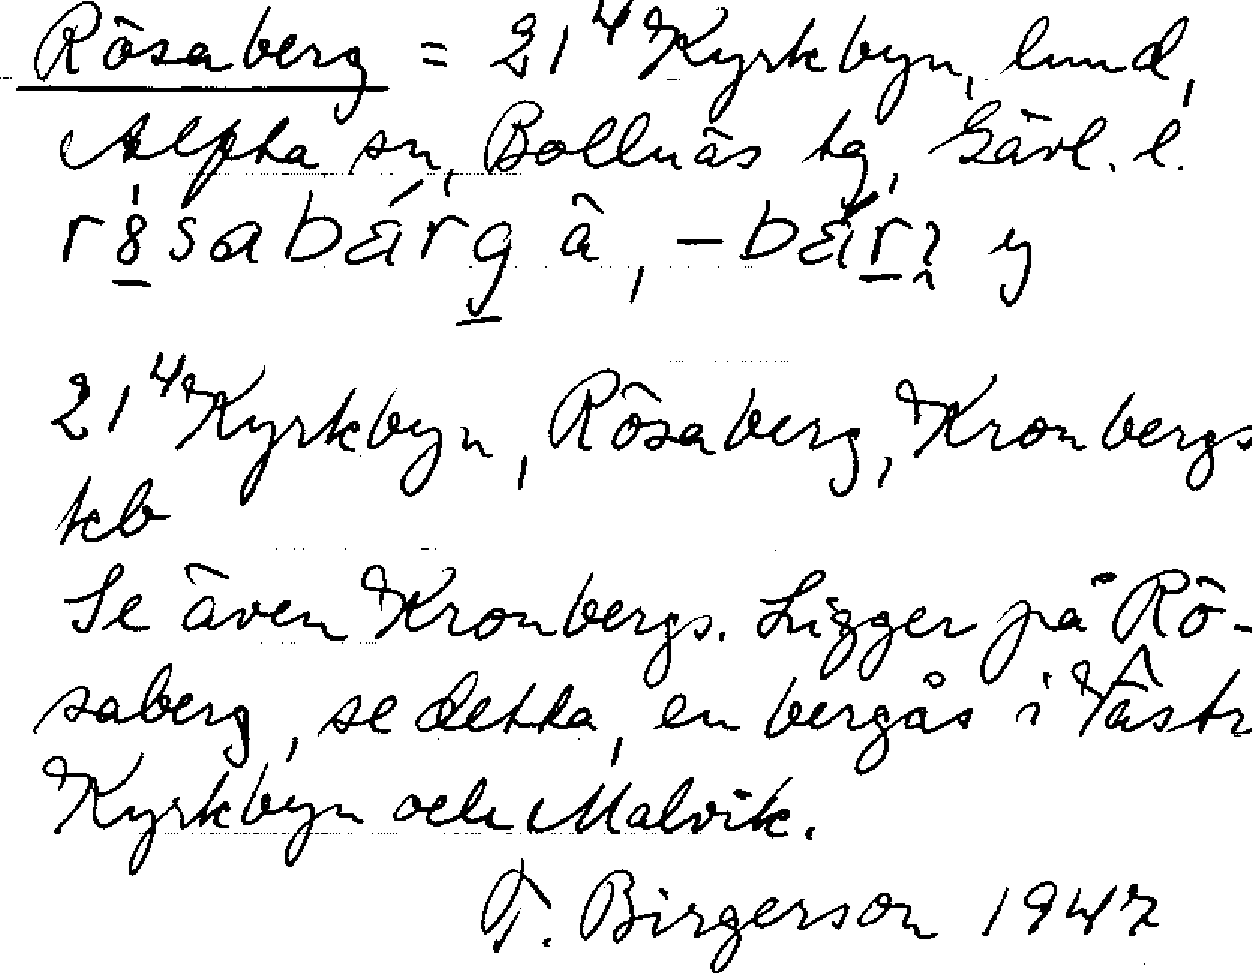 Rösaberg = 21⁴ Kyrkbyn, lund,
Alfta sn, Bollnäs tg, Gävl. l.
21⁴ Kyrkbyn, Rösaberg, Kronbergs
kb
Se även Kronbergs. Ligger på Rö-
saberg, se detta, en bergås i Västr
Kyrkbyn och Malvik.
T. Birgerson 1947